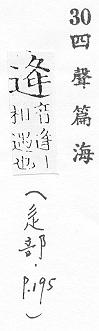 30四聲篇海
逢 音逢丨
扣遇也
(辵部·P.195)